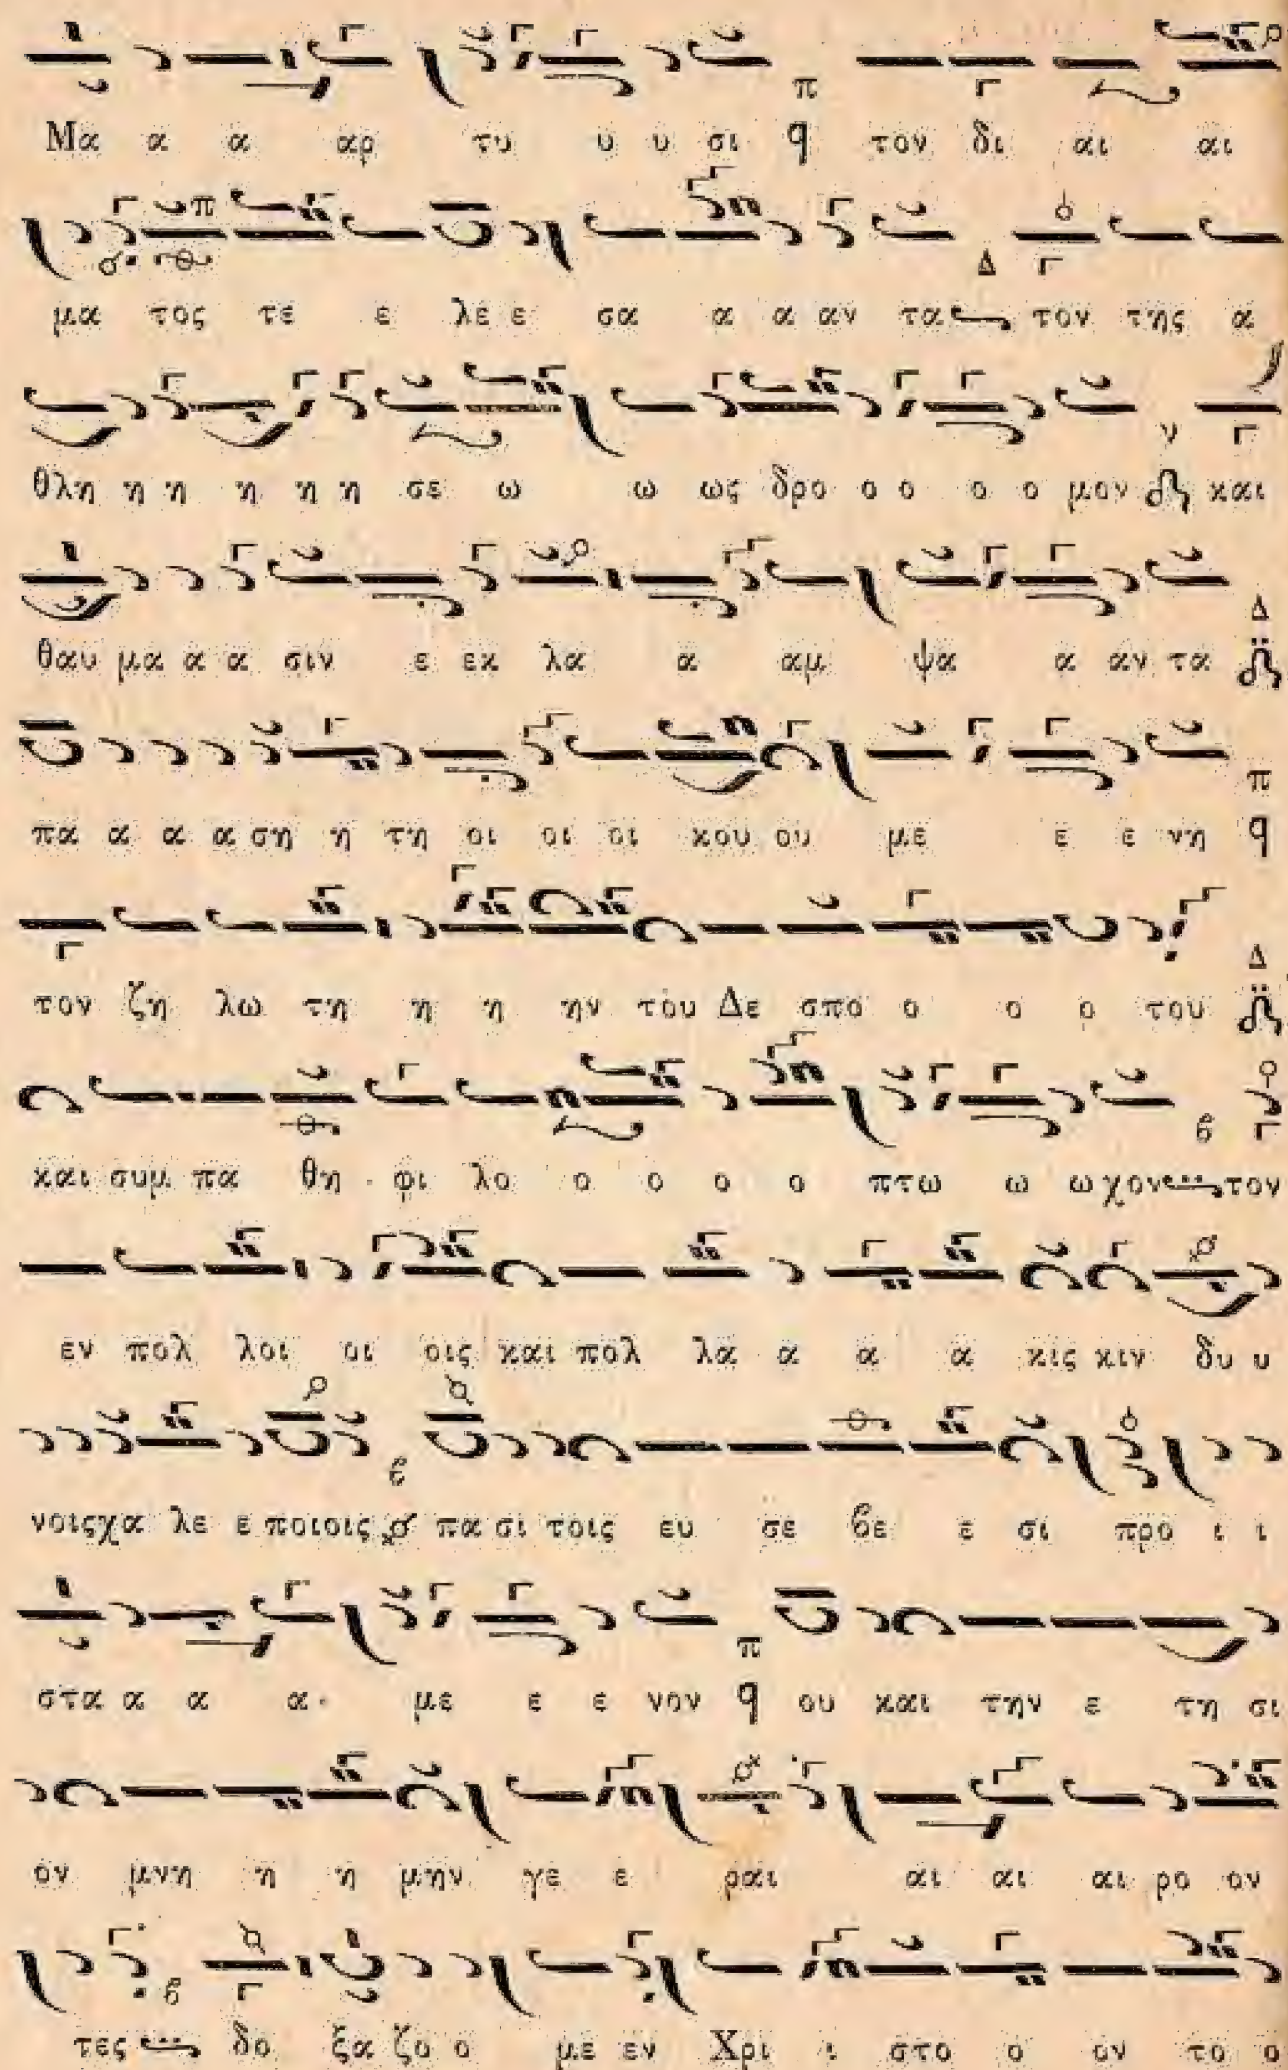 Μα α α αρ τυ υ υ σι π ϙ τον δι αι αι
μα τος τε ε λε ε σα α α αν τα Δ τον της α
θλη η η η η η σε ω ω ως δρο ο ο ο ο μον ν και
θαυ μα α α σιν ε εκ λα α αμ ψα α αν τα Δ
πα α α α ση η τη οι οι οι κου ου με ε ε νη π ϙ
τον ζη λω τη η η ην του Δε σπο ο ο ο του Δ
και συμ πα θη φι λο ο ο ο ο πτω ω ω χον ϐ τον
εν πολ λοι οι οις και πολ λα α α α κις κιν δυ υ
νοις χα λε ε ποιοις ϐ πα σι τοις ευ σε ϐε ε σι προ ι ι
στα α α α με ε ε νον π ϙ ου και την ε τη σι
ον μνη η η μην γε ε ραι αι αι αι ρο ον
τες ϐ δο ξα ζο ο με εν Χρι ι στο ο ον το ο